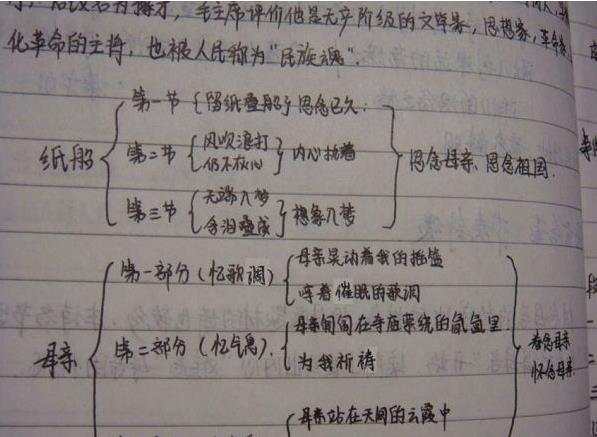 毛主席评价他是无产阶级的文学家，思想家，革命家
化革命的主将，也被人民称为"民族魂"．
纸船
第一节 留纸叠船 思念已久：
第二节
风吹浪打
仍不灰心
内心执着
第三节
无端入梦
含泪叠成
想象入梦
思念母亲、思念祖国．
母亲
第一部分（忆歌调）
母亲晃动着我的摇篮
哼着催眠的歌调
第二部分（忆气息）．
母亲
为我祈祷
怀念母亲
母亲站在天间的云霞中